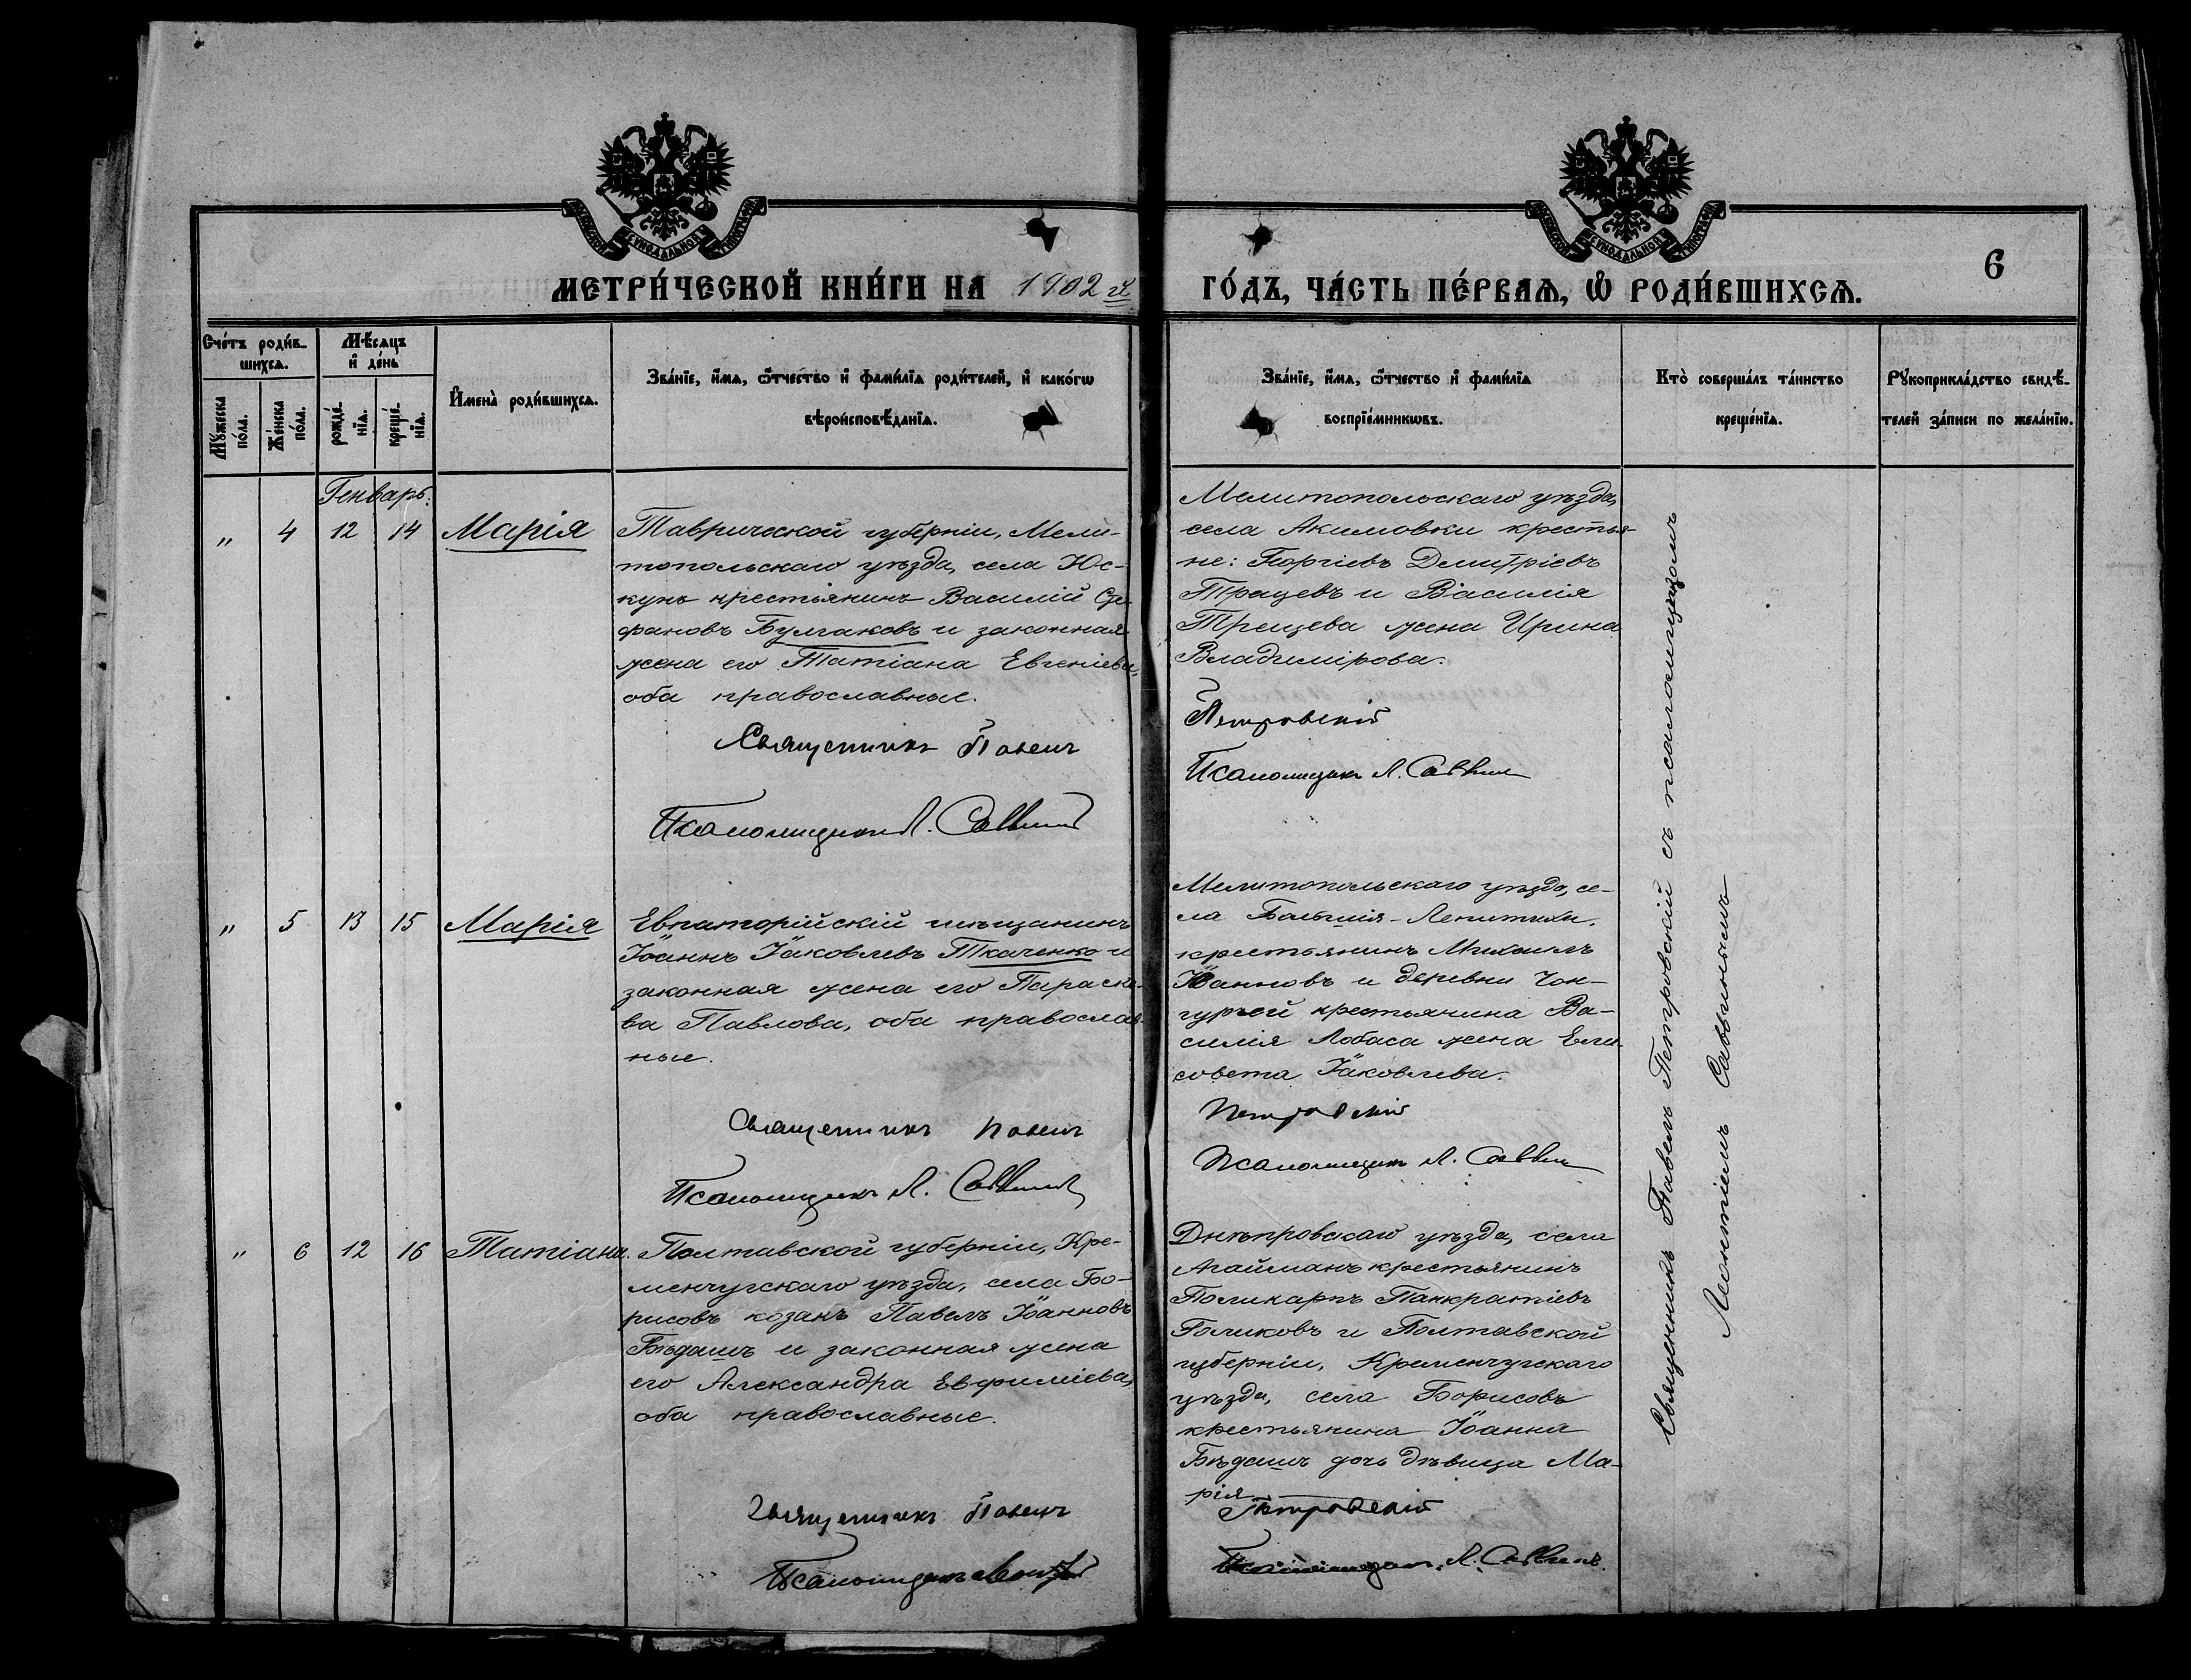 МЕТРИ́ЧЕСКОЙ КНИ́ГИ НА 1902 г.
ГО́ДЪ, ЧА́СТЬ ПЕ́РВАѦ, Ѽ РОДИ́ВШИХСѦ.
6
Сче́тъ роди́в-
шихсѧ.
Мꙋ́жеска
по́ла.
Же́нска
по́ла.
Мѣ́сѧцъ
и҆ де́нь
рожде́-
нїѧ.
креще́-
нїѧ.
И҆мена̀ роди́вшихсѧ.
Зва́нїе, и҆́мѧ, ѻ҆́тчество и҆ фами́лїѧ роди́телей, и҆ како́гѡ
вѣроисповѣ́данїѧ.
Зва́нїе, и҆́мѧ, ѻ҆́тчество и҆ фами́лїѧ
воспрїе́мникѡвъ.
Кто̀ соверша́лъ та́инство
креще́нїѧ.
Рꙋкоприкла́дство свидѣ́-
телей за́писи по жела́нїю.
Генварь.
„ 4 12 14 Марія
Таврической губерніи, Мели-
топольскаго уѣзда, села Юс-
куи крестьянинъ Василій Сте-
фановъ Булгаковъ и законная
жена его Татіана Евгеніева,
оба православные.
Священникъ Павелъ
Псаломщикъ Л. Саввинъ
Мелитопольскаго уѣзда,
села Акимовки крестья-
не: Георгіевъ Димитріевъ
и Василія
жена Ирина
Владимірова.
Петровскій
Псаломщикъ Л. Саввин
„ 5 13 15 Марія
Евпаторійскій мѣщанинъ
Іоаннъ Іаковлевъ Ткаченко и
законная жена его Параске-
ва Павлова, оба православ-
ные.
Священникъ Павелъ
Псаломщикъ Л. Саввинъ
Мелитопольскаго уѣзда, се-
ла
крестьянинъ Михаилъ
Іоанновъ и деревни Чон-
гургей крестьянина Ва-
силія Лобаса жена Ели-
совета Іаковлева.
Петровскій
Псаломщикъ Л. Саввин
„ 6 12 16 Татіана.
Полтавской губерніи, Кре-
менчугскаго уѣзда, села Бо-
рисовъ козакъ Павелъ Іоанновъ
Бѣдашъ и законная жена
его Александра Евфиміева,
оба православные.
Священникъ Павелъ
Псаломщикъ
Днѣпровскаго уѣзда, села
Агайманъ крестьянинъ
Поликарпъ Панкратіевъ
Голиковъ и Полтавской
губерніи, Кременчугскаго
уѣзда, села Борисовъ
крестьянина Іоанна
Бѣдашъ дочь дѣвица Ма-
рія
Петровскій
Псаломщикъ Л. Саввинъ.
Священникъ Павелъ Петровскій съ псаломщикомъ
Леонтіемъ Саввинымъ